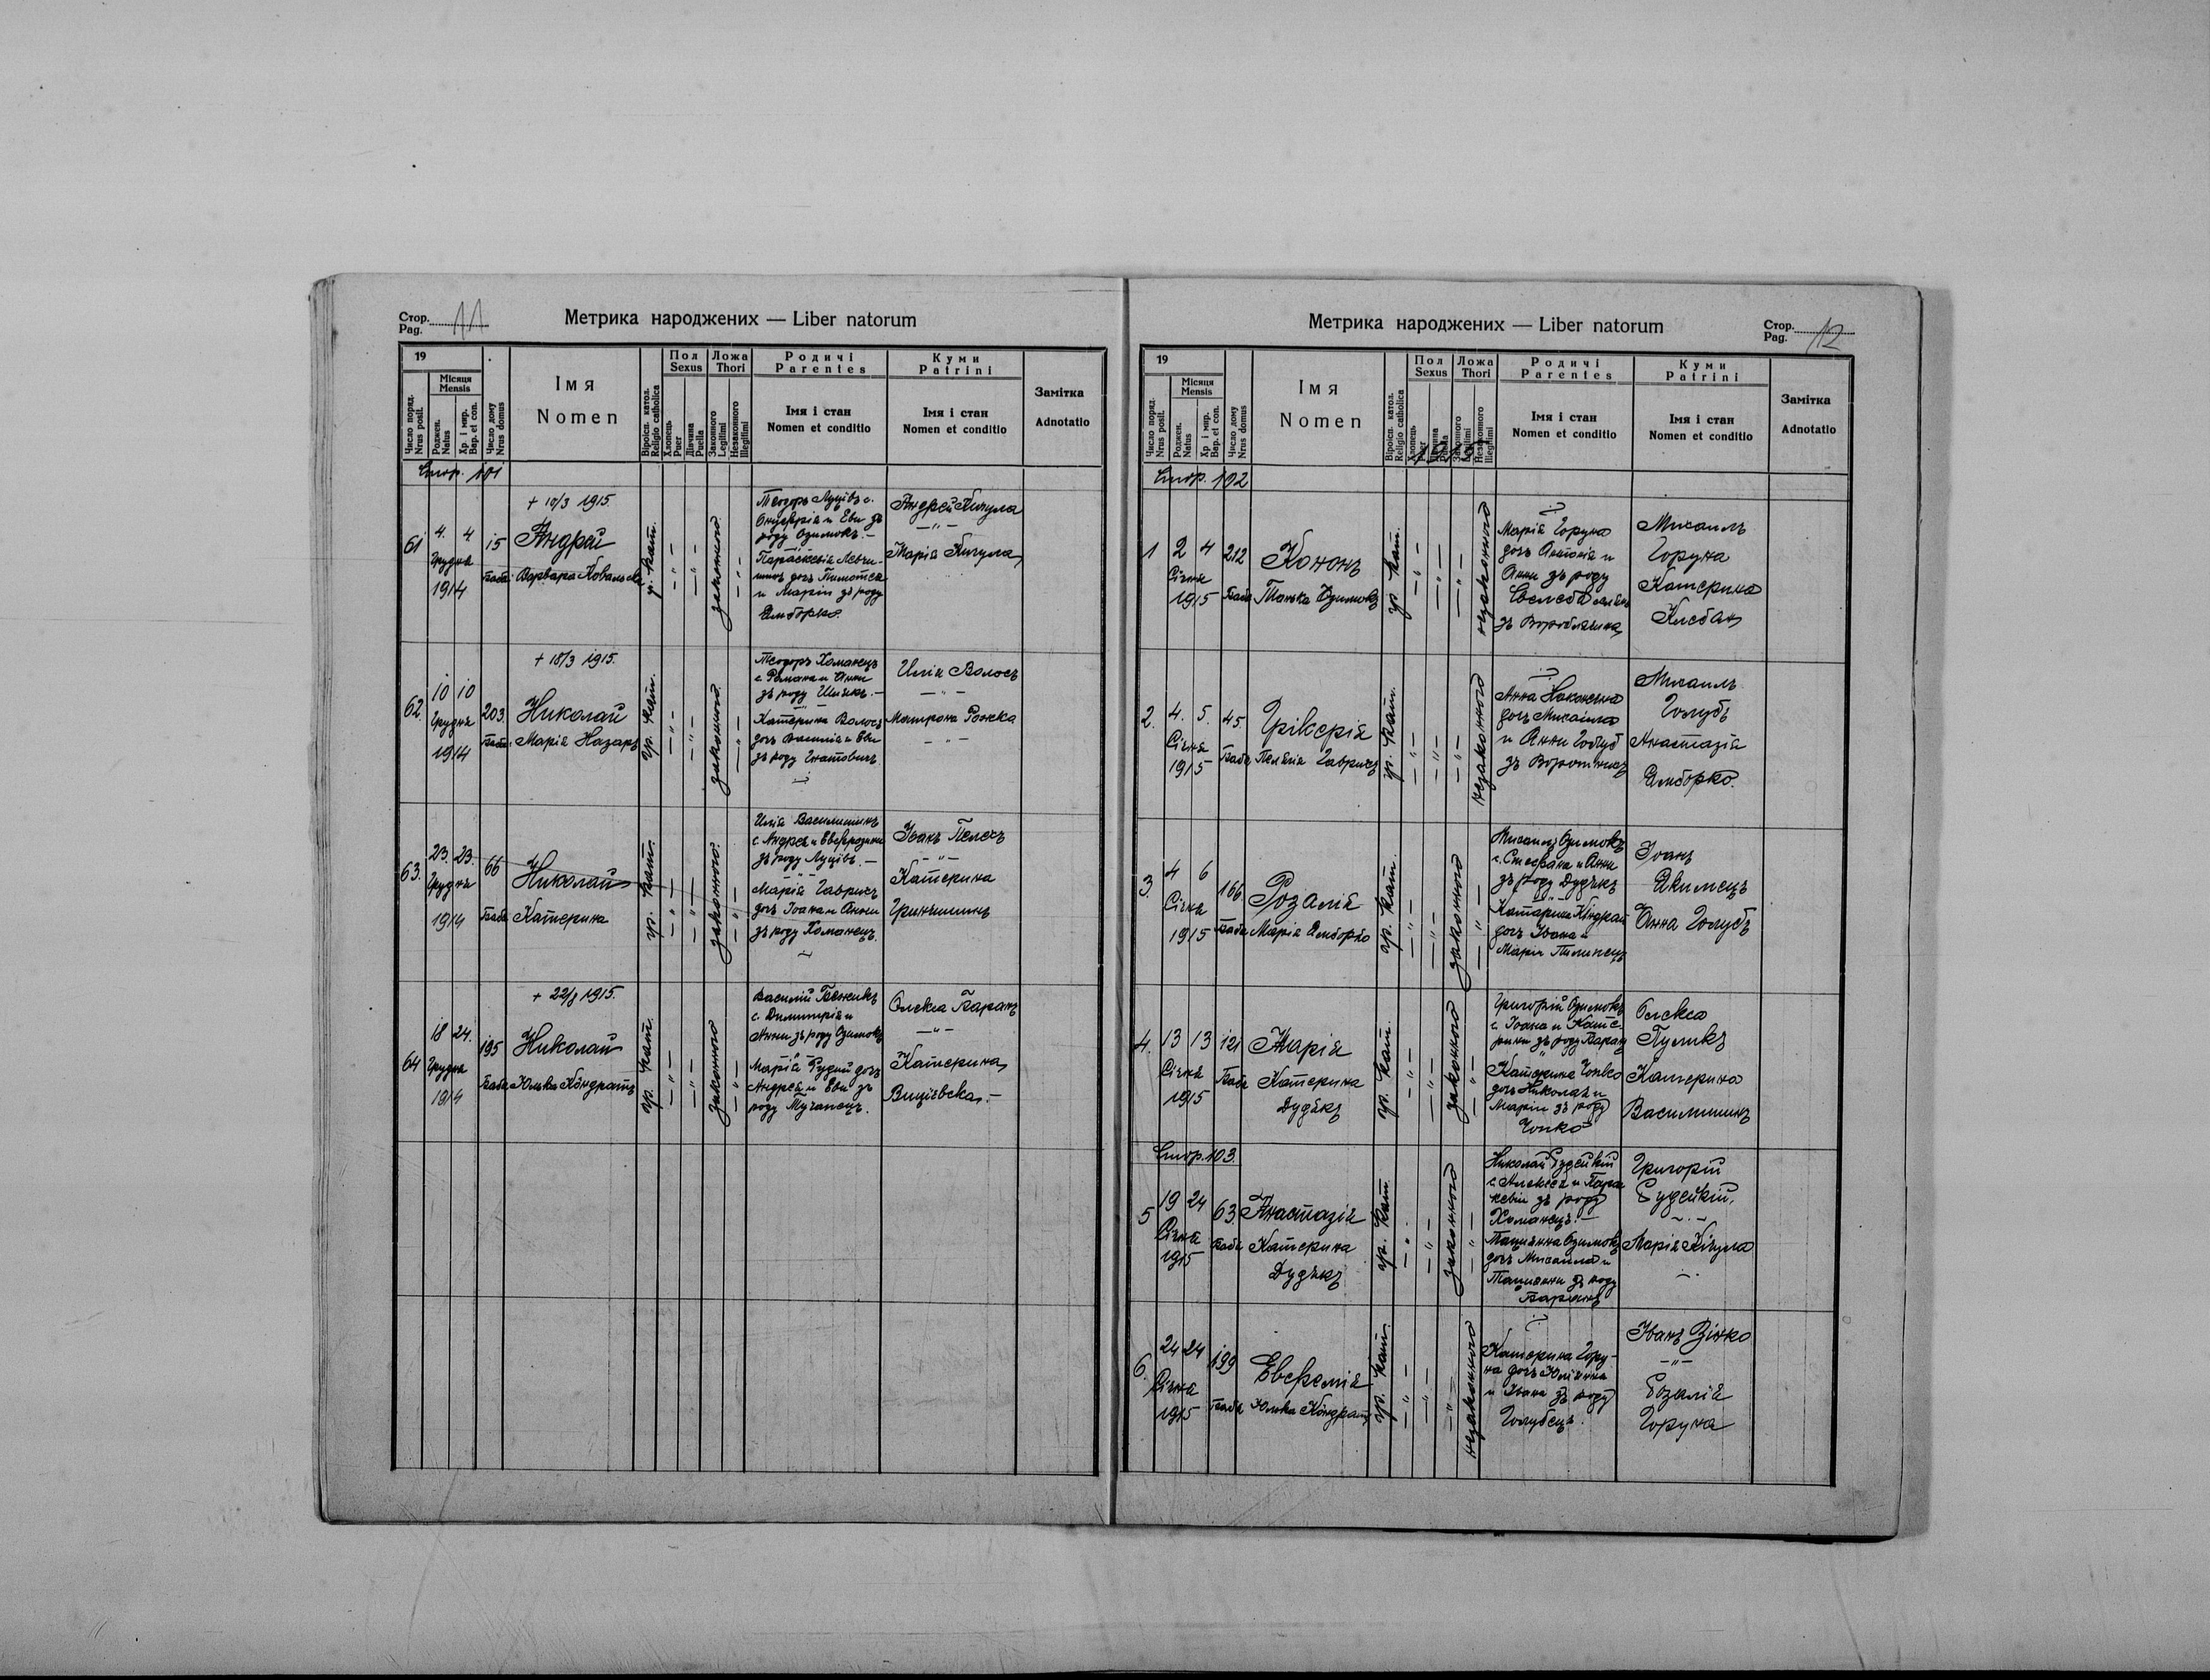 Стор. 11
Pag.
Метрика народжених — Liber natorum
19
Місяця
Mensis
Число поряд.
Nrus posit.
Роджен.
Natus
Хр. і мир.
Bap. et con.
Число дому
Nrus domus
Імя
Nomen
Віроісп. катол.
Religio catholica
Пол
Sexus
Хлопець
Puer
Дівчина
Puella
Ложа
Thori
Законного
Legitimi
Незаконного
Illegitimi
Родичі
Parentes
Імя і стан
Nomen et conditio
Куми
Patrini
Імя і стан
Nomen et conditio
Замітка
Adnotatio
Стор. 101
+ 10/3 1915.
61 4. 4. 15 Андрей
Грудня
1914
Баба: Варвара Ковальска
гр. кат.
законного
Теодоръ Луцівъ с.
Онуфрія и Еви зъ
роду Озимокъ.—
Параскевія Левчи-
шинъ доч Тимотея
и Маріи зъ роду
Ямборко.
Андрей Кигула
— " —
Марія Кигула
+ 18/3 1915.
62. 10 10 203. Николай
Грудня
1914
Баба: Марія Назаръ
гр. кат.
законного
Теодоръ Хоманецъ
с. Романа и Анни
зъ роду Шикъ.—
Катерина Волосъ
доч Василія и Еви
зъ роду Гнатовичъ
Илія Волосъ
— " —
Матрона Рожка
— " —
63. 23. 23. 66 Николай
Грудня
1914
Баба Катерина
гр. кат.
законного
Илія Василишинъ
с. Андрея и Евфрозини
зъ роду Луцівъ.—
Марія Гаврихъ
доч Іоана и Анни
зъ роду Хоманецъ.
Іванъ Пелехъ
— " —
Катерина
Гринишинъ
+ 22/8 1915.
64 18 24. 195 Николай
Грудня
1914
Баба Юлька Кондратъ
гр. кат.
законного
с. Димитрія и
Анни зъ роду Озимокъ
Марія Рудий доч
Андрея и Еви зъ
роду
Олекса Баранъ
— " —
Катерина
Вицієвска.—
Метрика народжених — Liber natorum
Стор. 12
Pag.
19
Місяця
Mensis
Число поряд.
Nrus posit.
Роджен.
Natus
Хр. і мир.
Bap. et con.
Число дому
Nrus domus
Імя
Nomen
Віроісп. катол.
Religio catholica
Пол
Sexus
Хлопець
Puer
Дівчина
Puella
Ложа
Thori
Законного
Legitimi
Незаконного
Illegitimi
Родичі
Parentes
Імя і стан
Nomen et conditio
Куми
Patrini
Імя і стан
Nomen et conditio
Замітка
Adnotatio
1915
Стор. 102
1 2 4 212 Кононъ
Січня
1915
Баба Танька Озимокъ
гр. кат.
незаконного
Марія Горуна
доч Антонія и
Анни зъ роду
зъ Вороблячина
Михаилъ
Горуна
Катерина
Клебанъ
2. 4. 5. 45. Глікерія
Січня
1915
Баба Пелагія Гаврихъ
гр. кат.
незаконного
Анна Наконечна
доч Михаила
и Анни Голуб
Михаилъ
Голубъ
Анастазія
Ямборко.
3. 4 6 166. Розалія
Січня
1915
Баба Марія Ямборко
гр. кат.
законного
Михаилъ Озимокъ
с. Стефана и Анни
зъ роду Дудякъ
Катарина Кондрат
доч Івана и
Маріи Пилипецъ
Іоанъ
Якимецъ
Анна Голубъ
4. 13 13 121 Марія
Січня
1915
Баба Катерина
Дудякъ
гр. кат.
законного
Григорій Озимокъ
с. Іоана и Кате-
рини зъ роду Баран
Катерина Чопко
доч Николая и
Маріи зъ роду
Чопко
Олекса
Пуликъ
Катерина
Василишинъ
Стор. 103.
5 19 24 63. Анастазія
Січня
1915
Баба Катерина
Дудякъ
гр. кат.
законного
Николай Рудейкій
с. Алексея и Парас
кевіи зъ роду
Хоманецъ.—
Татіянна Озимокъ
доч Михаила и
Татіяни зъ роду
Григорій
Рудейкій.
Марія Кігула
6. 24 24 199 Евфемія
Січня
1915
Баба Юлька Кондратъ
гр. кат.
незаконного
Катерина Гору-
на доч Юліянна
и Івана зъ роду
Голубецъ.
Іванъ Зінко
— " —
Розалія
Горуна